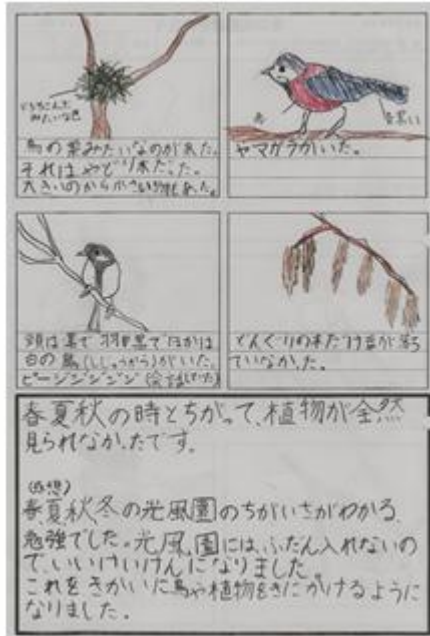 鳥の巣みたいなのがあった。
それはやどり木だった。
大きいのから小さい
赤
ヤマガラがいた。
頭は黒で羽黒でほかは
白の鳥(しじゅうがら)がいた。
ピージジジジジ
どんぐりの木だけ葉が落ち
ていなかった。
春夏秋の時とちがって、植物が全然
見られなかったです。
(感想)
春、夏、秋、冬の光風園のちがいさがわかる
勉強でした。光風園には、ふだん入れないの
で、いいけいけんになりました。
これをきかいに鳥や植物をきにかけるように
なりました。